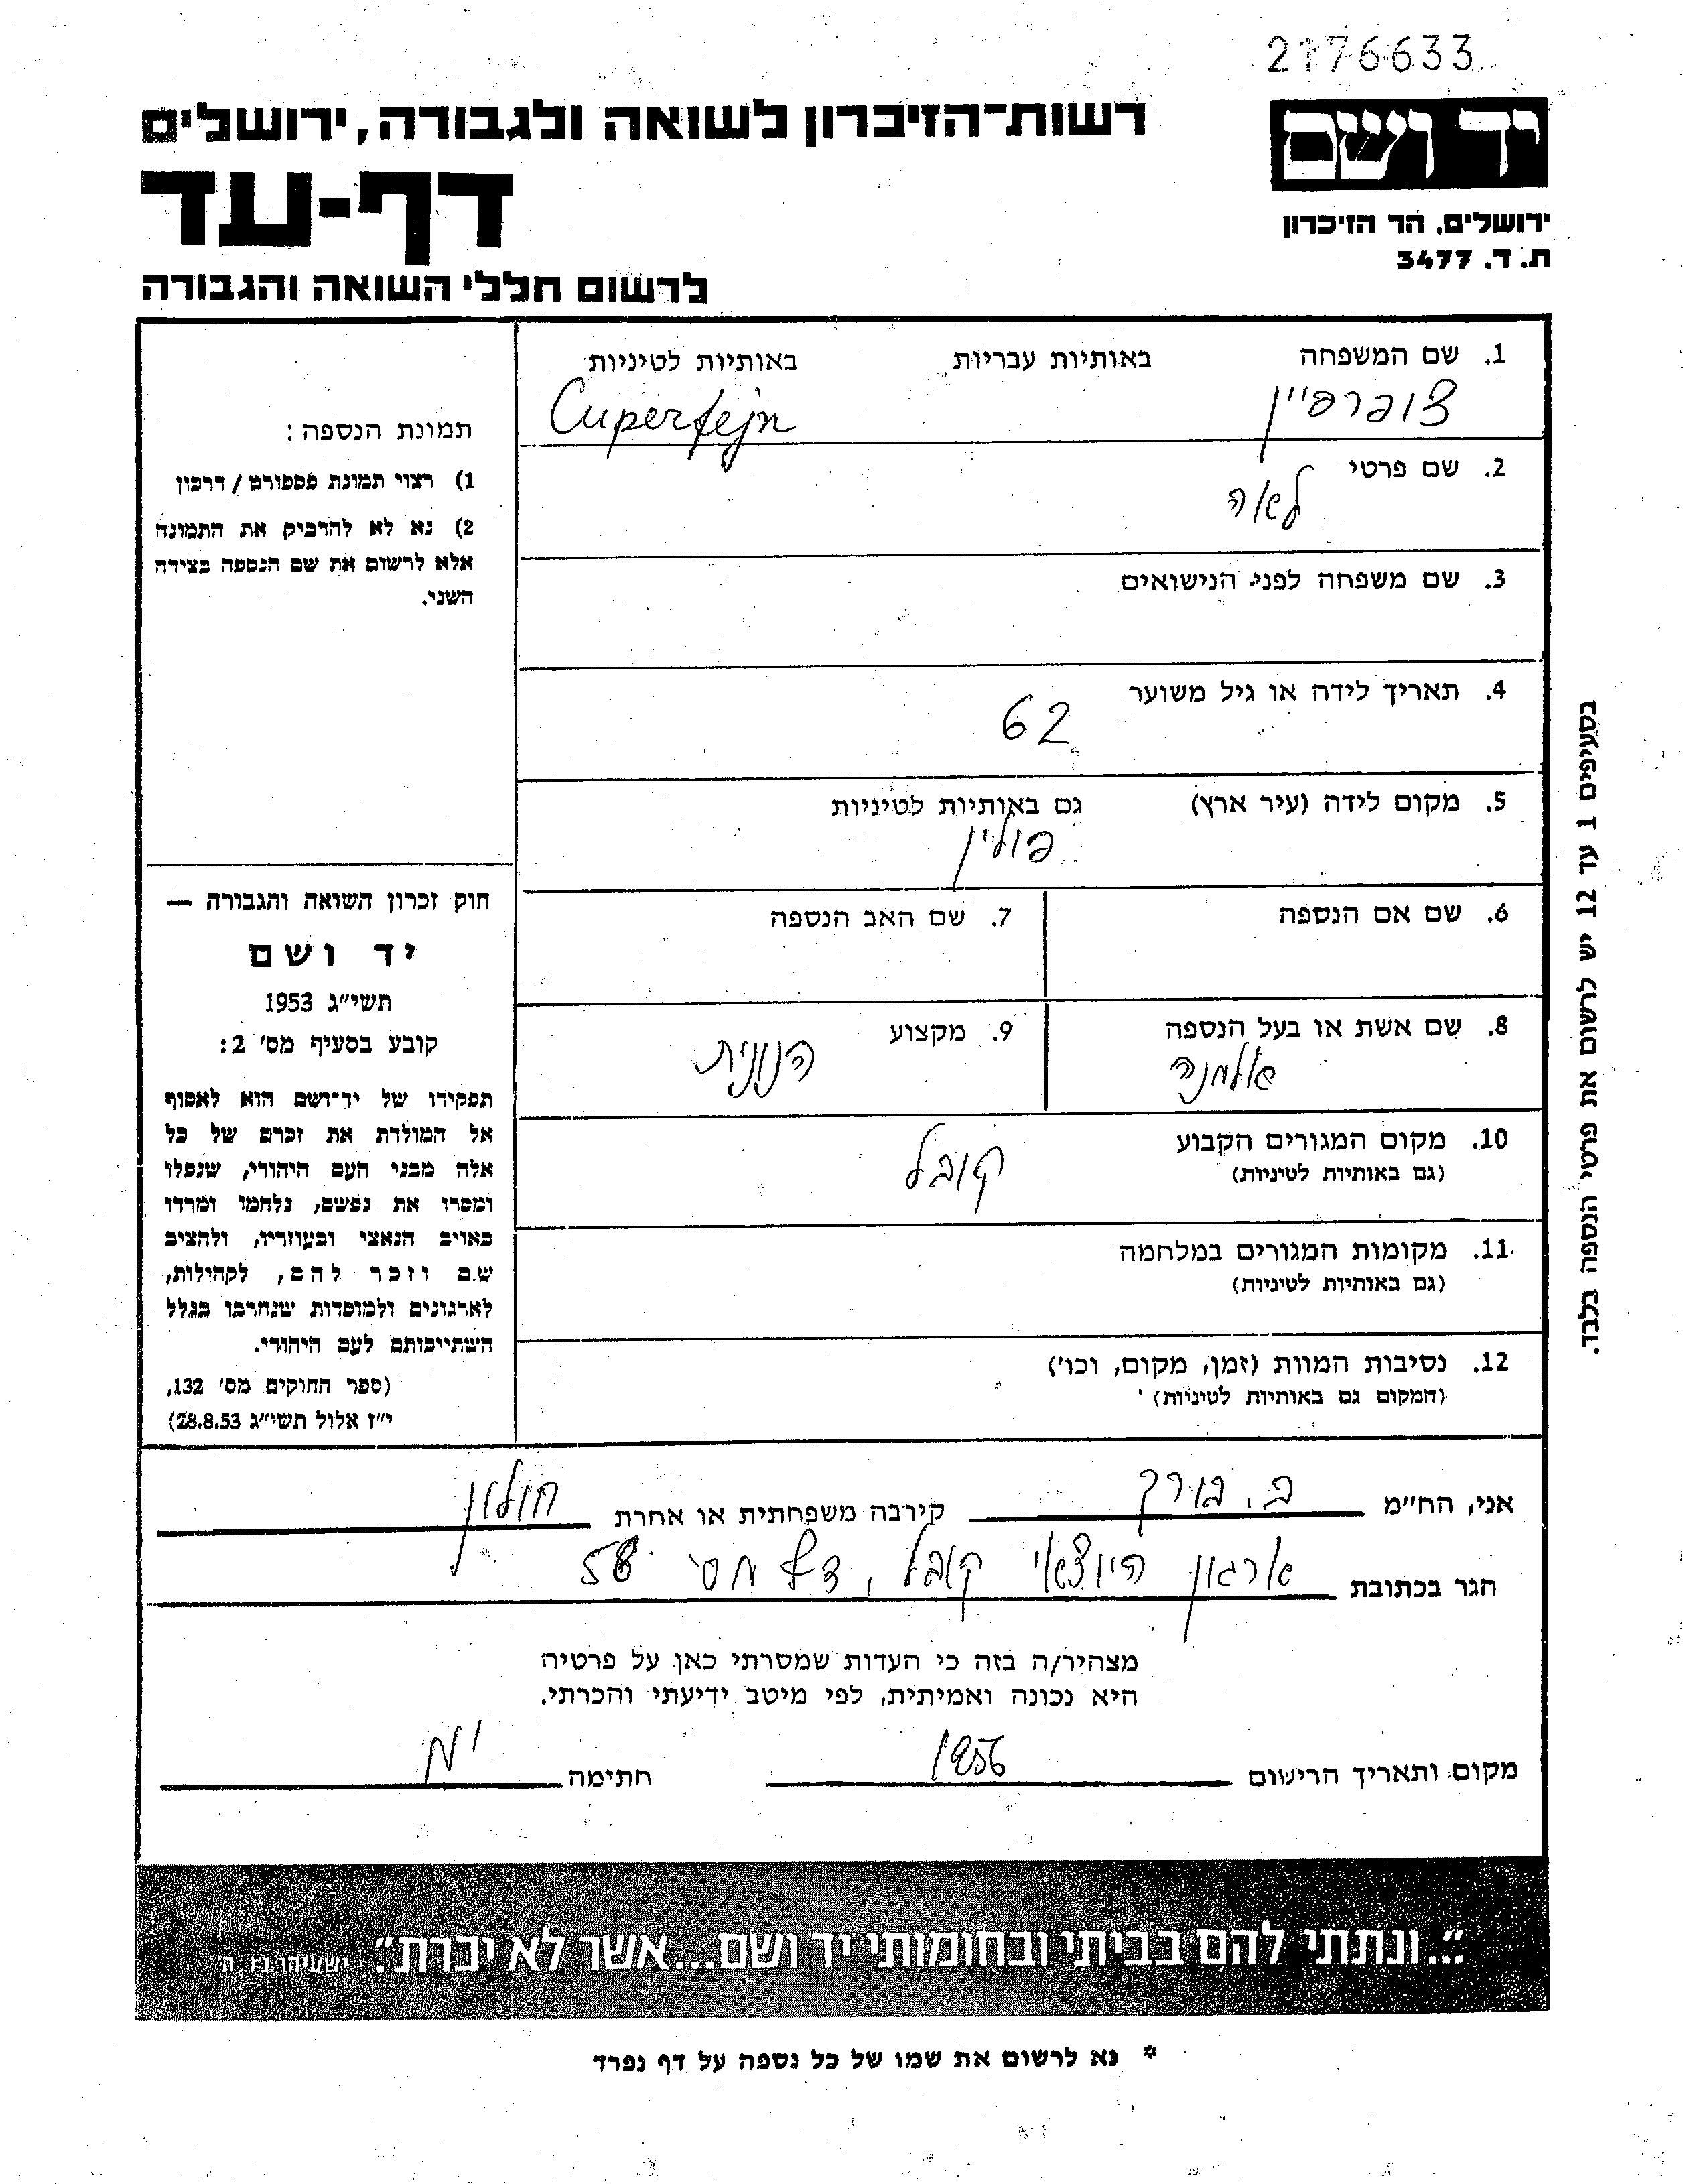 2176633
יד ושם
רשות־הזיכרון לשואה ולגבורה, ירושלים
דף-עד
ירושלים, הר הזיכרון
ת.ד. 3477
לרשום חללי השואה והגבורה
1. שם המשפחה באותיות עבריות באותיות לטיניות
צוברפיין Cuperfejn
2. שם פרטי
לאה
3. שם משפחה לפני הנישואים
4. תאריך לידה או גיל משוער
62
5. מקום לידה (עיר ארץ) גם באותיות לטיניות
פולין
6. שם אם הנספה 7. שם האב הנספה
8. שם אשת או בעל הנספה 9. מקצוע
אלמנה חנונית
10. מקום המגורים הקבוע
(גם באותיות לטיניות)
קובל
11. מקומות המגורים במלחמה
(גם באותיות לטיניות)
12. נסיבות המוות (זמן, מקום, וכו')
(המקום גם באותיות לטיניות)
תמונת הנספה:
1) רצוי תמונת פספורט / דרכון
2) נא לא להדביק את התמונה
אלא לרשום את שם הנספה בצידה
השני.
חוק זכרון השואה והגבורה —
יד ושם
תשי"ג 1953
קובע בסעיף מס' 2:
תפקידו של יד־ושם הוא לאסוף
אל המולדת את זכרם של כל
אלה מבני העם היהודי, שנפלו
ומסרו את נפשם, נלחמו ומרדו
באויב הנאצי ובעוזריו, ולהציב
שם וזכר להם, לקהילות,
לארגונים ולמוסדות שנחרבו בגלל
השתייכותם לעם היהודי.
(ספר החוקים מס' 132,
י"ז אלול תשי"ג 28.8.53)
בסעיפים 1 עד 12 יש לרשום את פרטי הנספה בלבד.
אני, הח"מ ב. בורק קירבה משפחתית או אחרת חולון
הגר בכתובת ארגון היוצאי קובל, דף מס' 58
מצהיר/ה בזה כי העדות שמסרתי כאן על פרטיה
היא נכונה ואמיתית, לפי מיטב ידיעתי והכרתי.
מקום ותאריך הרישום 1956 חתימה
"...ונתתי להם בביתי ובחומותי יד ושם...אשר לא יכרת". ישעיהו נ"ו, ה
* נא לרשום את שמו של כל נספה על דף נפרד